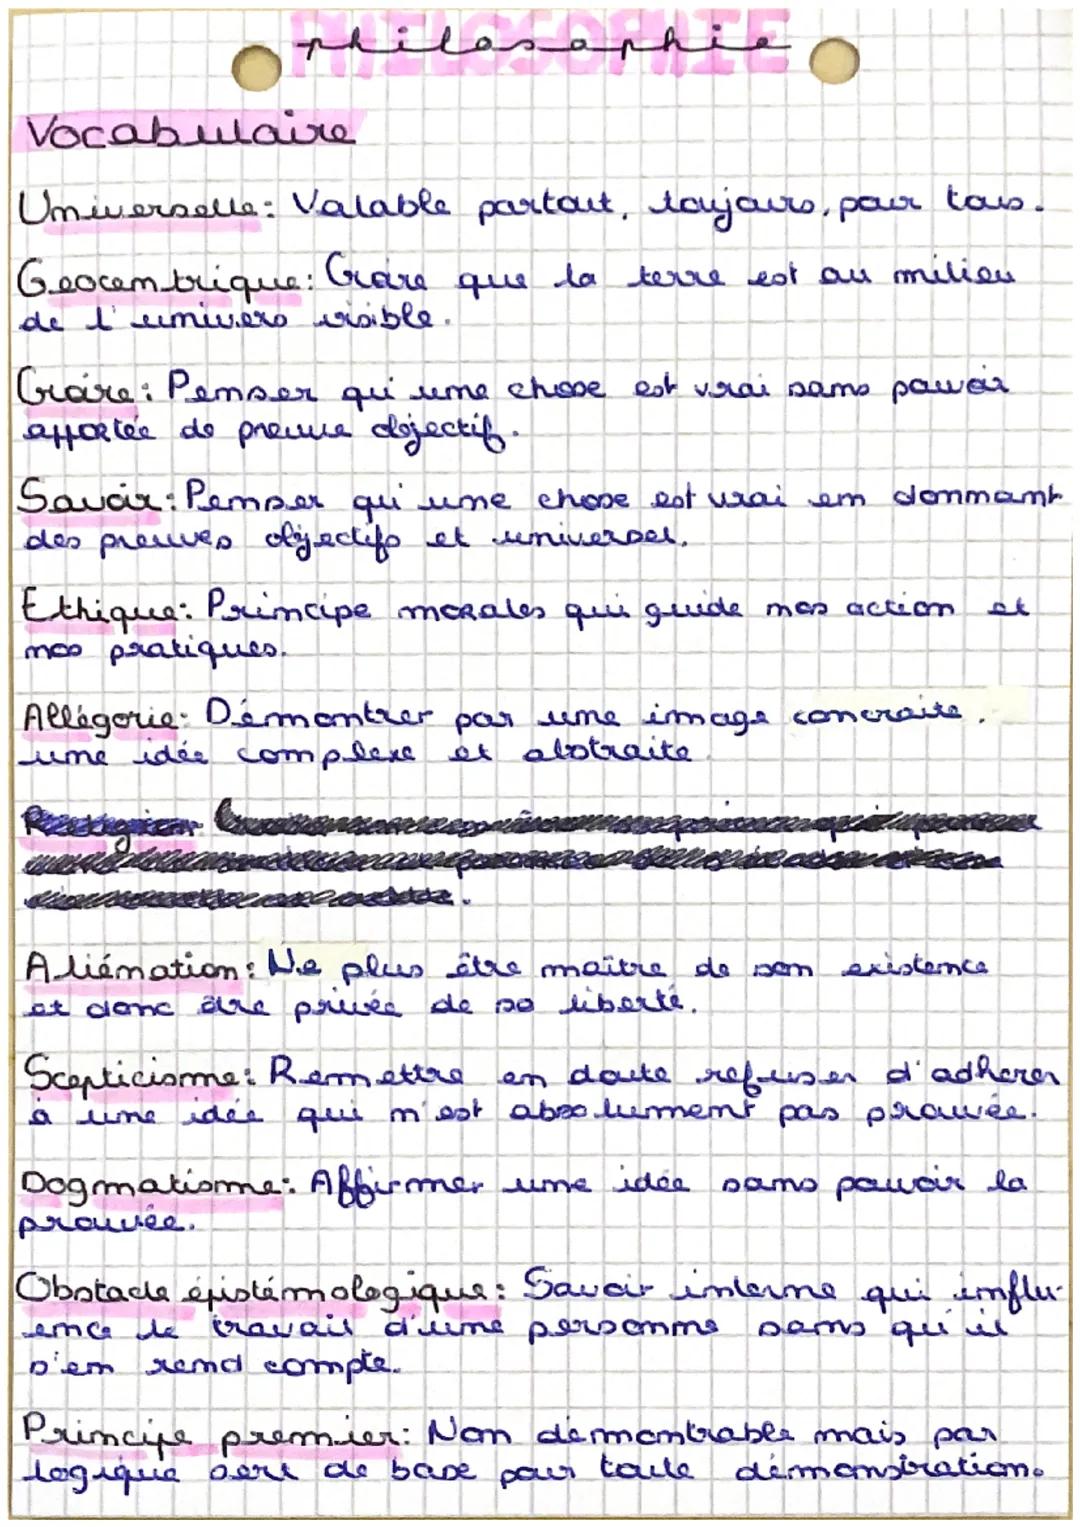 PHILOSOPHIE
philosophie
Vocabulaire
Universelle: Valable partout, toujours, pour tous.
Geocentrique: Croire que la terre est au milieu
de l'univers visible.
Croire: Penser qu'une chose est vrai sans pouvoir
apportée de preuve objectif.
Savoir: Penser qu'une chose est vrai en donnant
des preuves objectifs et universel.
Ethique: Principe morales qui guide nos action et
nos pratiques.
Allégorie: Démontrer par une image concraite,
une idée complexe et abstraite.
Aliénation: Ne plus être maître de son existence
et donc être privée de sa liberté.
Scepticisme: Remettre en doute refuser d'adherer
à une idée qui n'est absolument pas prouvée.
Dogmatisme: Affirmer une idée sans pouvoir la
prouvée.
Obstacle épistémologique: Savoir interne qui influ-
ence le travail d'une personne sans qu'il
s'en rend compte.
Principe premier: Non démontrable mais par
logique sert de base pour toute démonstration.